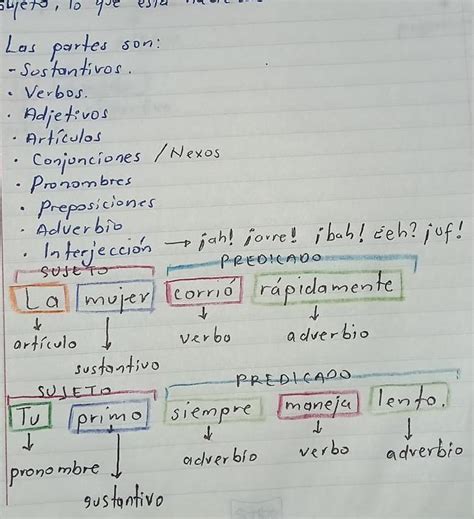 sujeto, lo que está
Las partes son:
- Sustantivos.
· Verbos.
· Adjetivos
· Artículos
· Conjunciones / Nexos
· Pronombres
· Preposiciones
· Adverbio
· Interjección → ¡ah! ¡orre! ¡bah! ¿eh? ¡uf!
SUJETO PREDICADO
La mujer corrió rápidamente
artículo sustantivo verbo adverbio
SUJETO PREDICADO
Tu primo siempre maneja lento.
pronombre sustantivo adverbio verbo adverbio